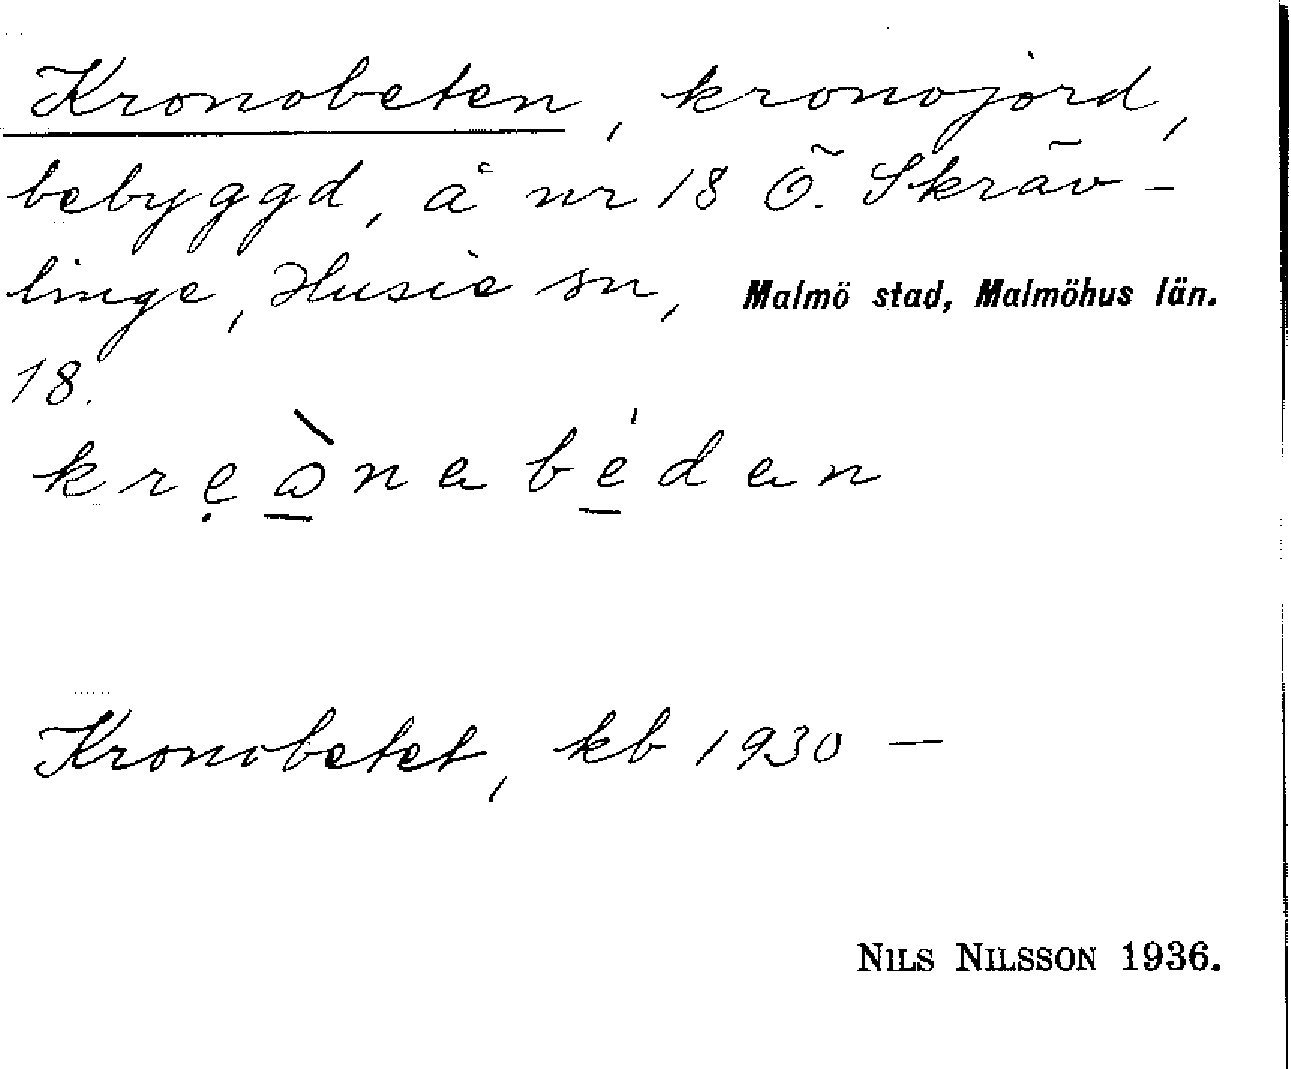 Kronobeten, kronojord,
bebyggd, å nr 18 Ö. Skräv-
linge, Husie sn, Malmö stad, Malmöhus län.
18.
krẹò̱nabe̱̍dan
Kronobetet, kb 1930 —
NILS NILSSON 1936.